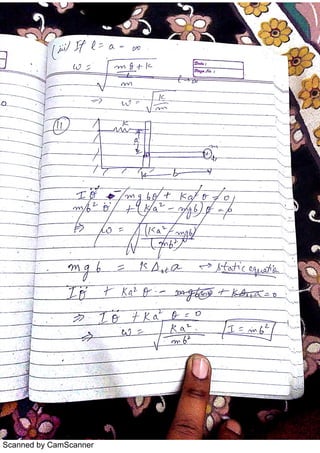 (iii) If l = a = ∞
ω = √((mg/l + K)/m)
Date :
Page No :
l → a
⇒ ω = √(K/m)
(11)
K
a
m
b
Iθ̈ - mgbθ + Ka²θ = 0
mb²θ̈ + (Ka² - mgb)θ = 0
⇒ ω = √((Ka² - mgb)/(mb²))
mgb = KΔst a → static equation
Iθ̈ + Ka²θ - mgb + KΔst a = 0
⇒ Iθ̈ + Ka²θ = 0
⇒ ω = √(Ka²/mb²) I = mb²
Scanned by CamScanner